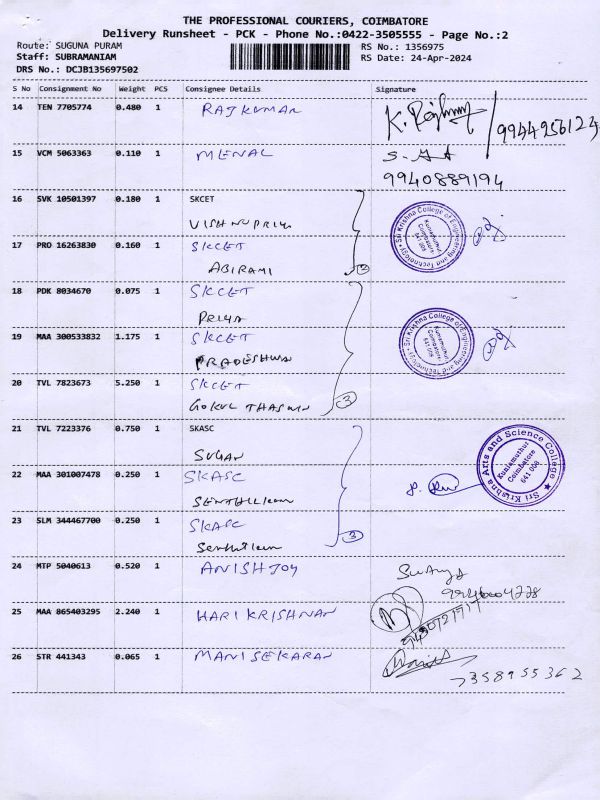 THE PROFESSIONAL COURIERS, COIMBATORE
Delivery Runsheet - PCK - Phone No.:0422-3505555 - Page No.:2
Route: SUGUNA PURAM
RS No.: 1356975
Staff: SUBRAMANIAM
RS Date: 24-Apr-2024
DRS No.: DCJB135697502
S No Consignment No Weight PCS Consignee Details Signature
14 TEN 7705774 0.480 1 RAJKUMAR
9944956123
15 VCM 5063363 0.110 1 MENAL
9940889194
16 SVK 10501397 0.180 1 SKCET
VISHNUPRIYA
17 PRO 16263830 0.160 1 SKCET
ABIRAMI
2
Sri Krishna College of Engineering and Technology
Kuniamuthur
Coimbatore
641 008
18 PDK 8034670 0.075 1 SKCET
PRIYA
19 MAA 300533832 1.175 1 SKCET
PRADESHWAR
20 TVL 7823673 5.250 1 SKCET
GOKUL THASWIN
3
Sri Krishna College of Engineering and Technology
Kuniamuthur
Coimbatore
641 008
21 TVL 7223376 0.750 1 SKASC
SUGAN
22 MAA 301007478 0.250 1 SKASC
SENTHILKUM
23 SLM 344467700 0.250 1 SKASC
Senthilkum
3
Sri Krishna Arts and Science College
Kuniamuthur
Coimbatore
641 008
24 MTP 5040613 0.520 1 ANISH JOY
25 MAA 865403295 2.240 1 HARIKRISHNAN
26 STR 441343 0.065 1 MANISEKARAN
7358955362